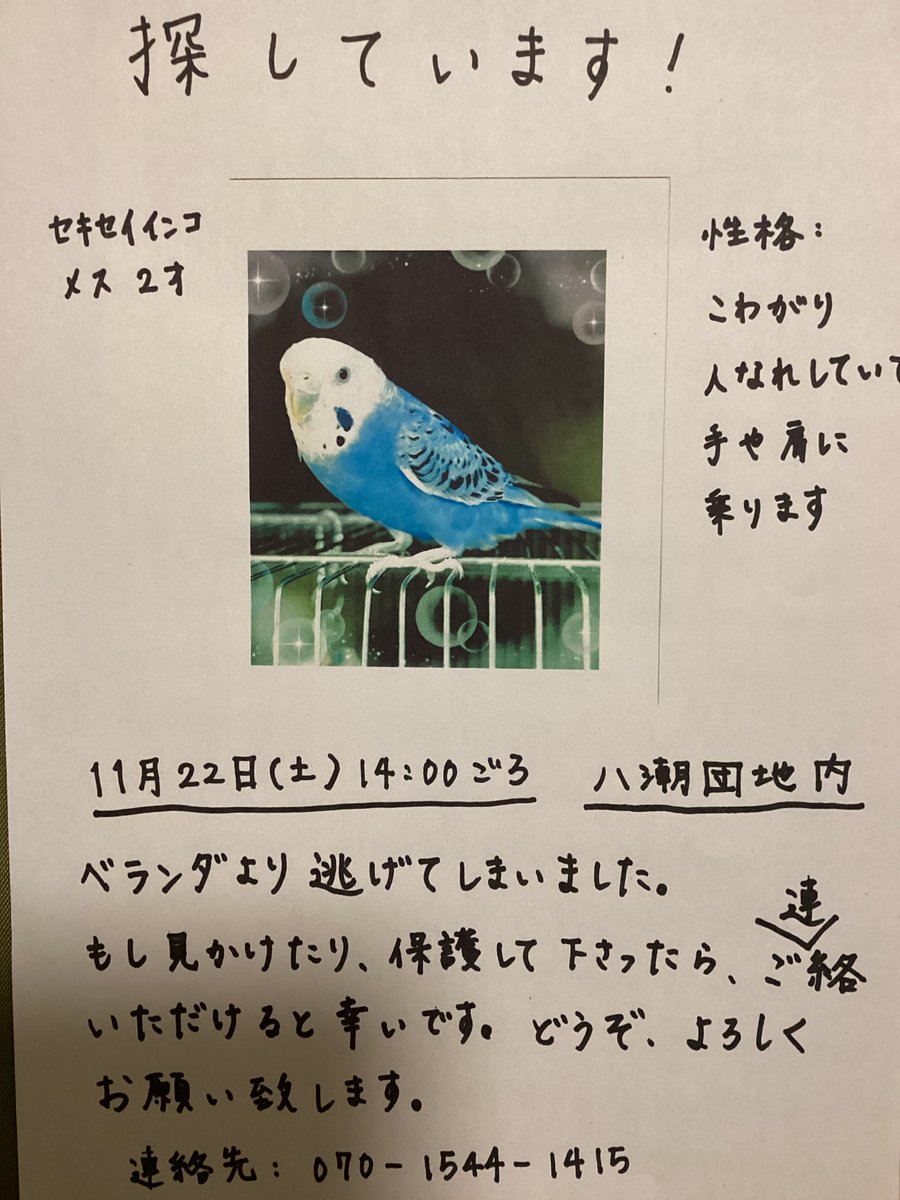 探しています!
セキセイインコ
メス 2才
性格:
こわがり
人なれしていて
手や肩に
乗ります
11月22日(土)14:00ごろ 八潮団地内
ベランダより逃げてしまいました。
もし見かけたり、保護して下さったら、ご連絡
いただけると幸いです。どうぞ、よろしく
お願い致します。
連絡先: 070-1544-1415